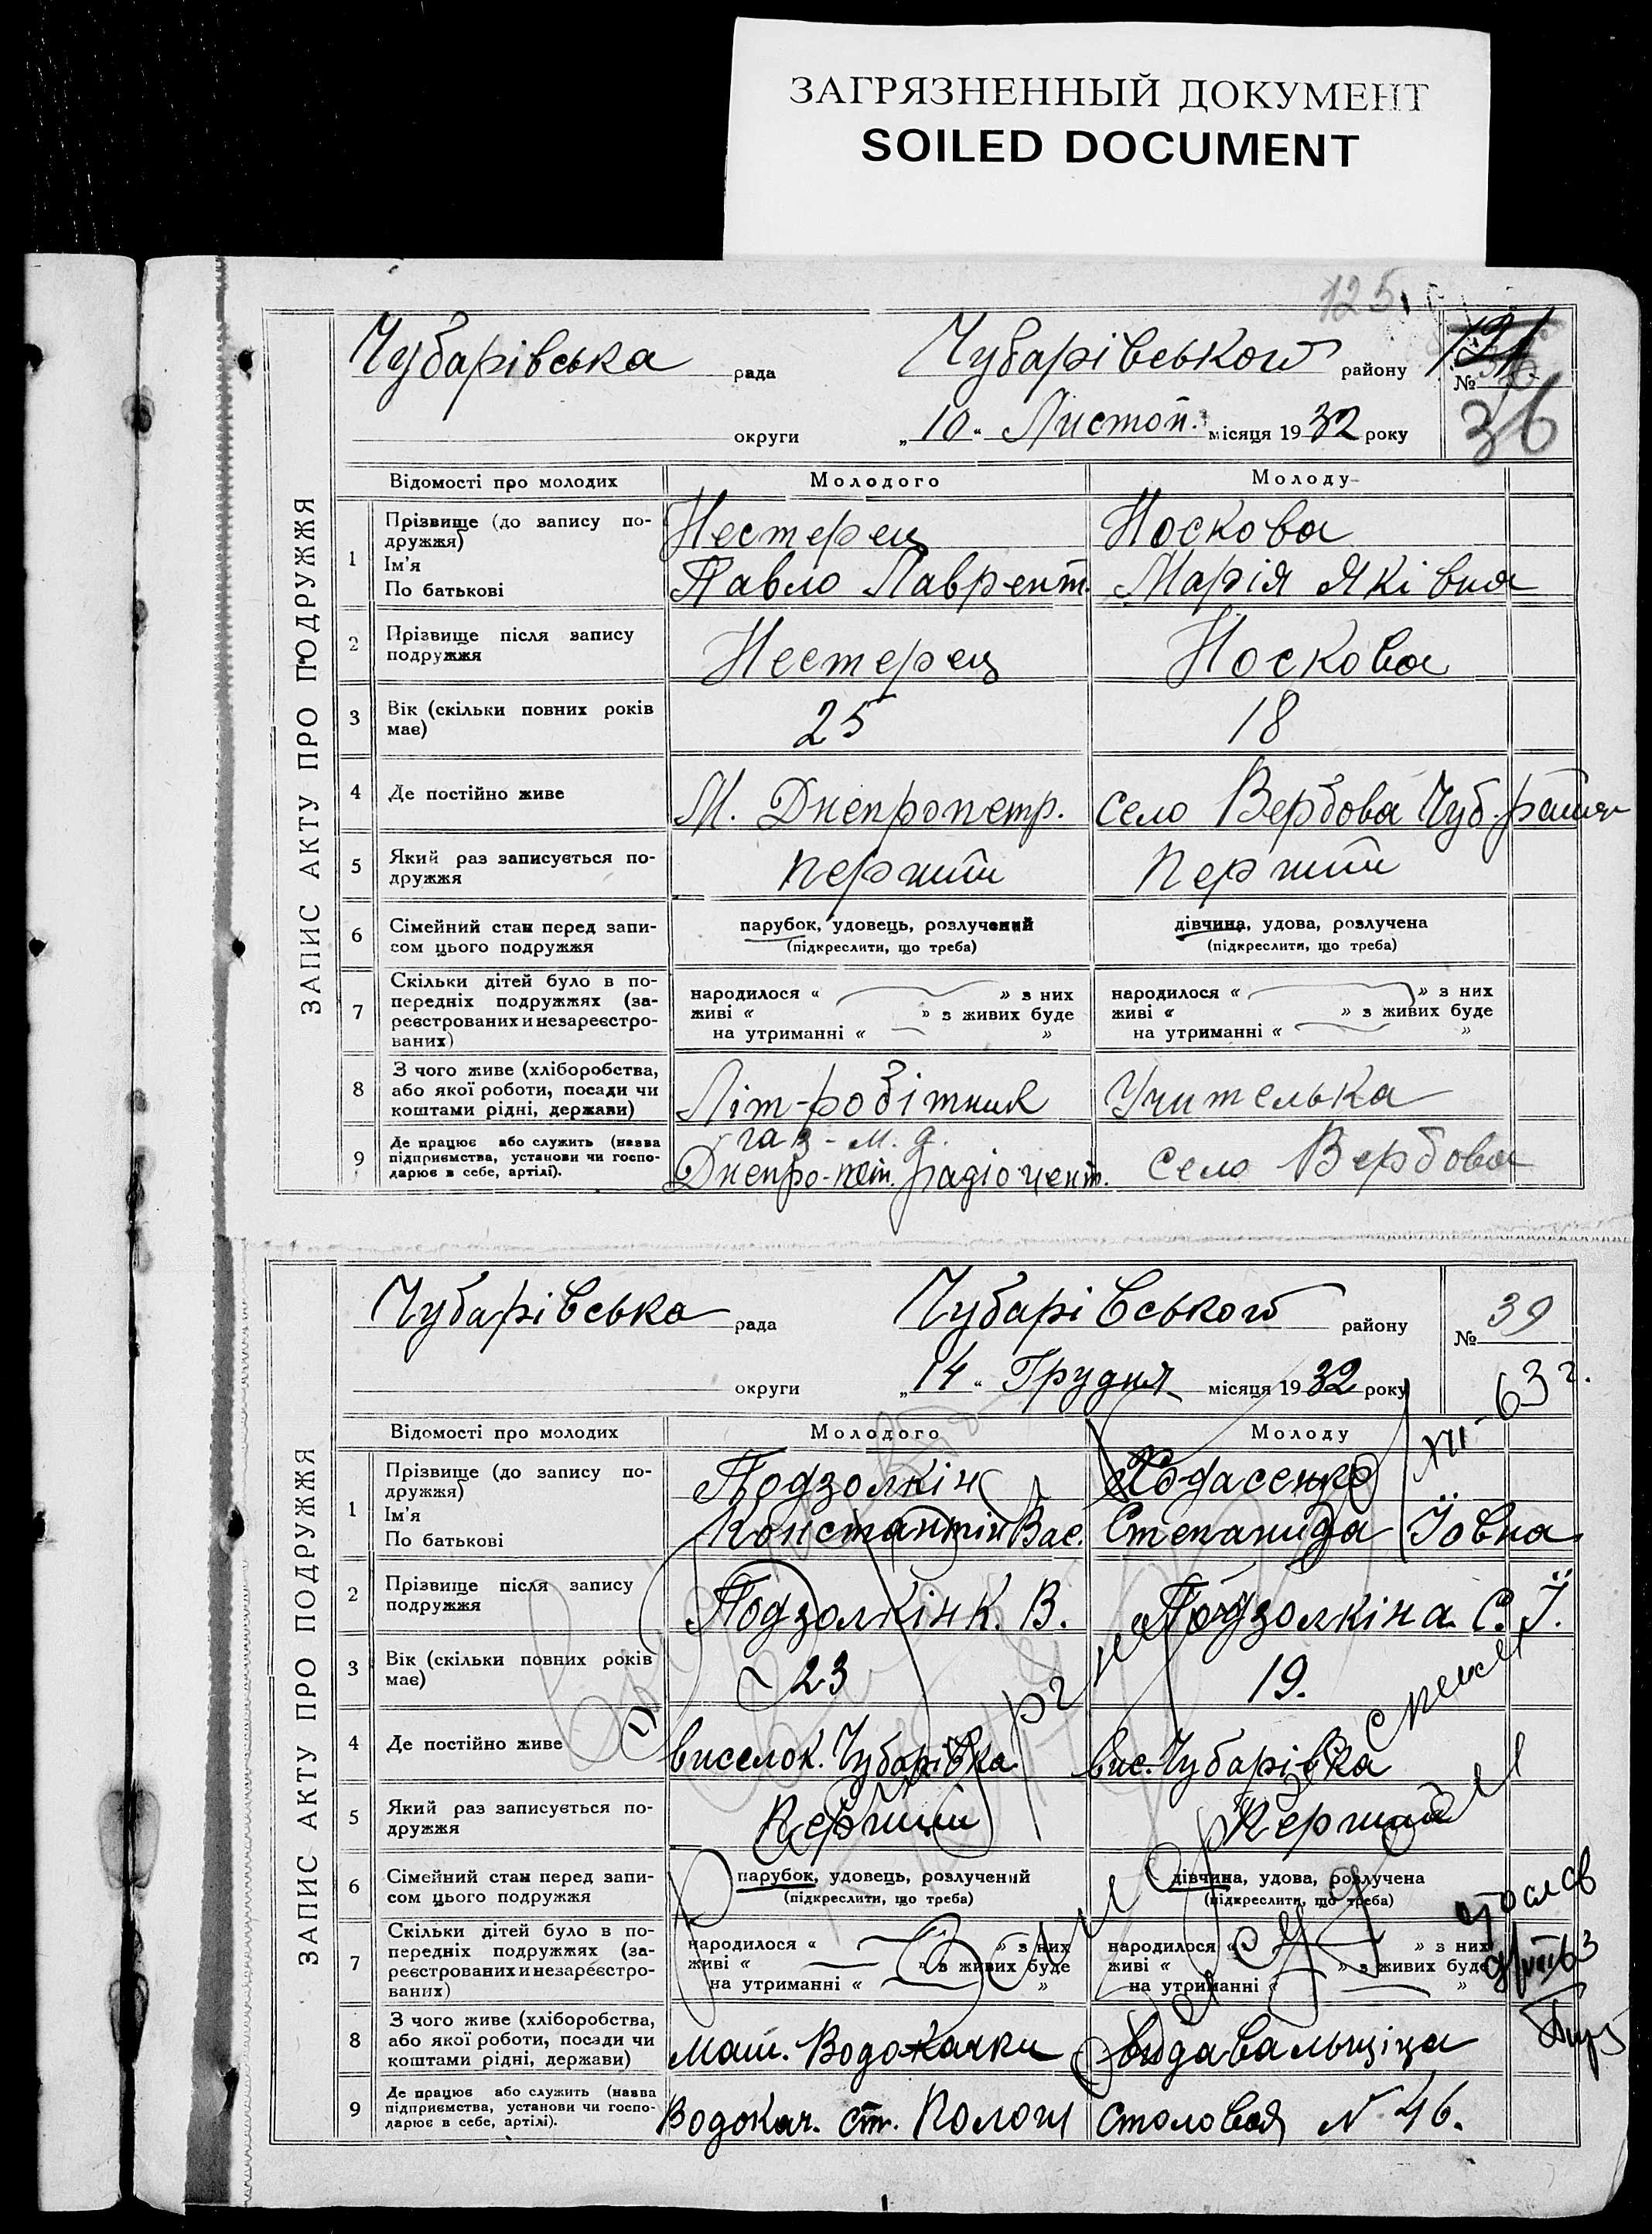 ЗАГРЯЗНЕННЫЙ ДОКУМЕНТ
SOILED DOCUMENT
125
ЗАПИС АКТУ ПРО ПОДРУЖЖЯ
Чубарівська рада Чубарівського району №
округи „10“ Листоп. місяця 1932 року 36
Відомості про молодих Молодого Молоду
1 Прізвище (до запису по-
дружжя) Нестерец Носкова
Ім'я
По батькові Павло Лаврент. Марія Яківна
2 Прізвище після запису
подружжя Нестерец Носкова
3 Вік (скільки повних років
має) 25 18
4 Де постійно живе М. Днепропетр. село Вербова Чуб.
5 Який раз записується по-
дружжя перший перший
6 Сімейний стан перед запи-
сом цього подружжя
парубок, удовець, розлучений дівчина, удова, розлучена
(підкреслити, що треба) (підкреслити, що треба)
7 Скільки дітей було в по-
передніх подружжях (за-
реєстрованих и незареєстро-
ваних)
народилося « » з них народилося « » з них
живі « » з живих буде живі « » з живих буде
на утриманні « » на утриманні « »
8 З чого живе (хліборобства,
або якої роботи, посади чи
коштами рідні, держави) Літ-робітник Учителька
9 Де працює або служить (назва
підприємства, установи чи госпо-
дарює в себе, артілі).
газ-м. д.
Днепро-пет. радіоцент. село Вербова
ЗАПИС АКТУ ПРО ПОДРУЖЖЯ
Чубарівська рада Чубарівського району № 39
округи „14“ Грудня місяця 1932 року
XII-63 г.
Відомості про молодих Молодого Молоду
1 Прізвище (до запису по-
дружжя) Подзолкін
Ім'я
По батькові Константін Вас. Степанида Йовна
2 Прізвище після запису
подружжя Подзолкін К. В. Подзолкіна С. Й.
3 Вік (скільки повних років
має) 23 19.
4 Де постійно живе виселок. Чубарівка вис. Чубарівка
5 Який раз записується по-
дружжя Перший Перший
6 Сімейний стан перед запи-
сом цього подружжя
парубок, удовець, розлучений дівчина, удова, розлучена
(підкреслити, що треба) (підкреслити, що треба)
7 Скільки дітей було в по-
передніх подружжях (за-
реєстрованих и незареєстро-
ваних)
народилося « » з них народилося « » з них
живі « » з живих буде живі « » з живих буде
на утриманні « » на утриманні « »
8 З чого живе (хліборобства,
або якої роботи, посади чи
коштами рідні, держави) маш. Водокачки видавальщіца
9 Де працює або служить (назва
підприємства, установи чи госпо-
дарює в себе, артілі).
Водокач. ст. Пологи столовая N 46.